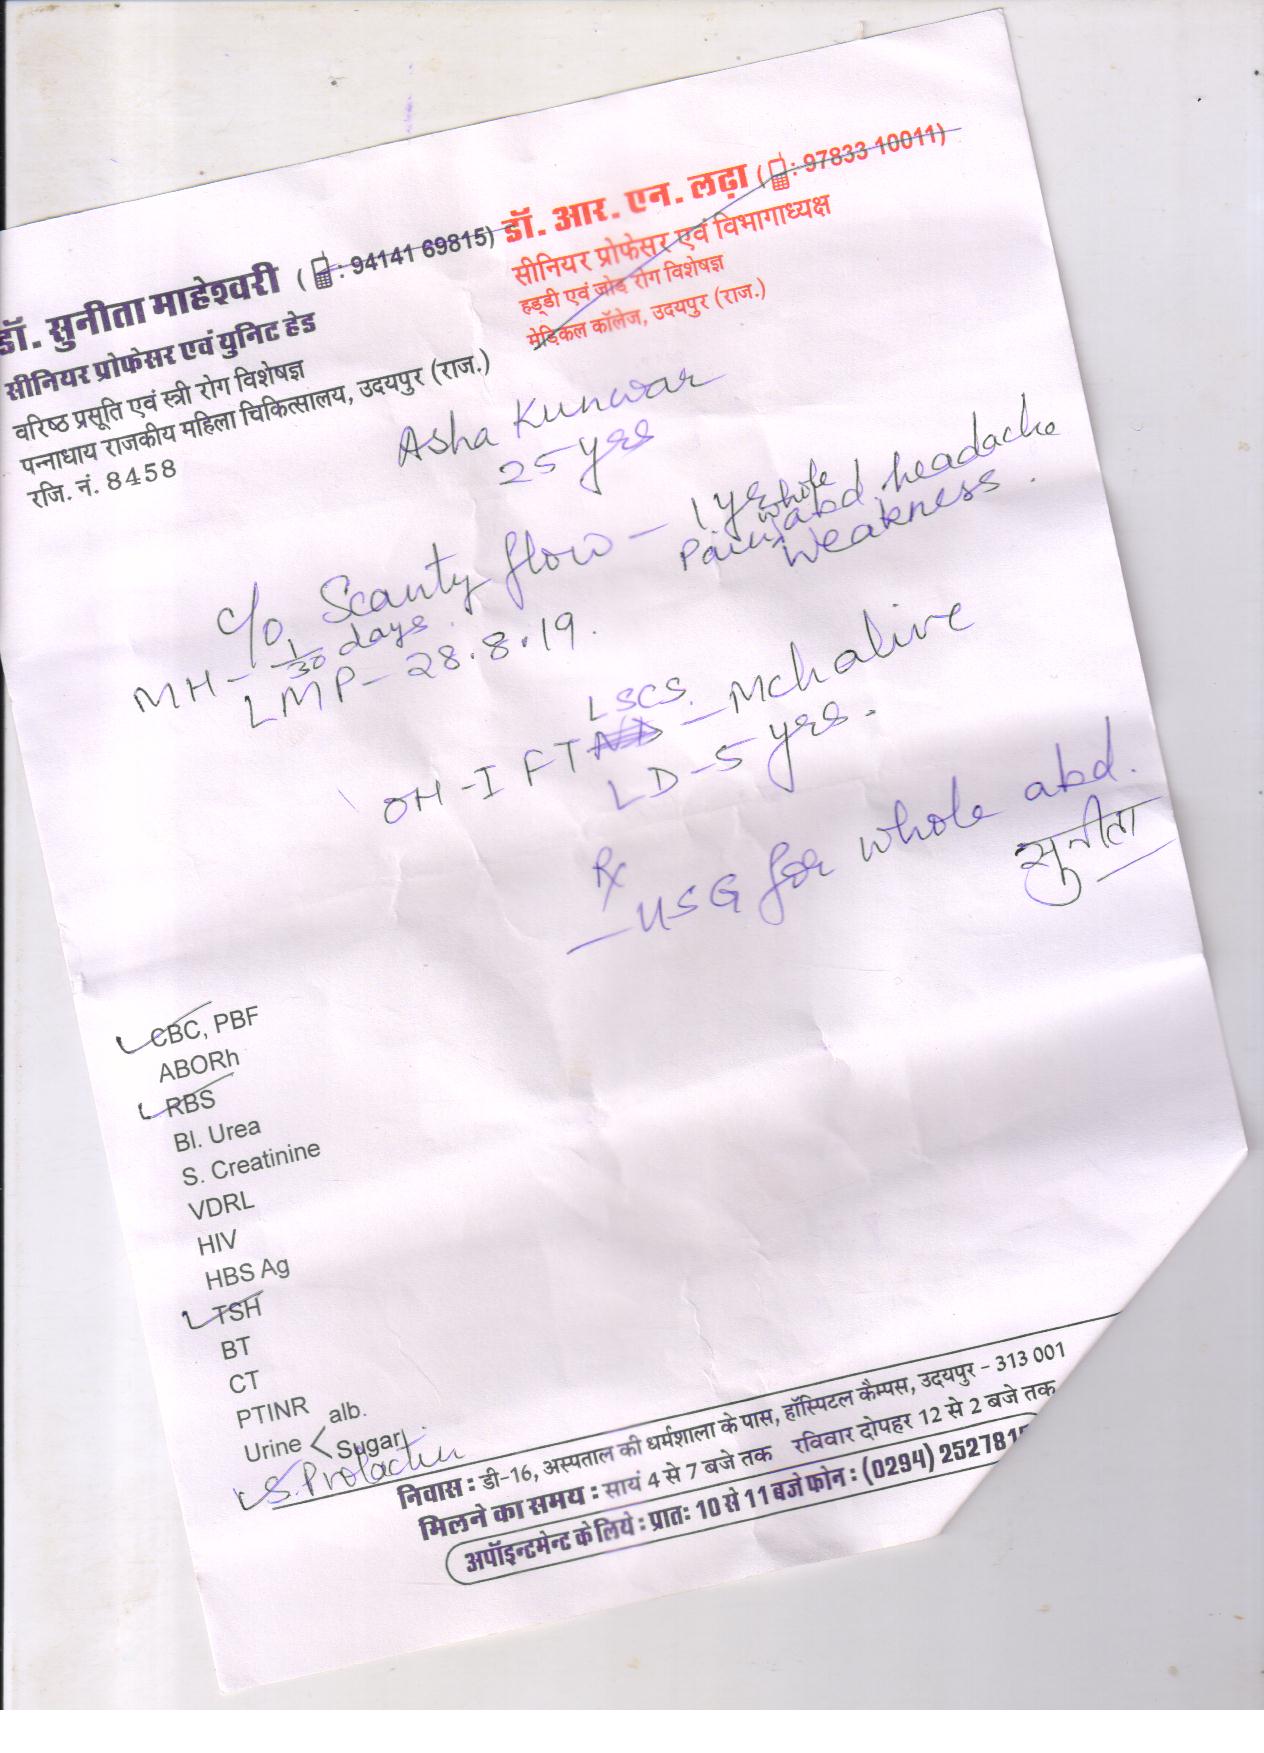 डॉ. सुनीता माहेश्वरी ( : 94141 69815)
सीनियर प्रोफेसर एवं युनिट हेड
वरिष्ठ प्रसूति एवं स्त्री रोग विशेषज्ञ
पन्नाधाय राजकीय महिला चिकित्सालय, उदयपुर (राज.)
रजि. नं. 8458
डॉ. आर. एन. लढ़ा ( : 97833 10011)
सीनियर प्रोफेसर एवं विभागाध्यक्ष
हड्डी एवं जोड़ रोग विशेषज्ञ
मेडिकल कॉलेज, उदयपुर (राज.)
Asha Kunwar
25 yrs
c/o Scanty flow - 1 yrs
Pain whole abd, headache
Weakness.
MH - 1/30 days.
LMP - 28.8.19.
OH - I FT LSCS. - Mch alive
LD - 5 yrs.
Rx
- USG for whole abd.
सुनीता
CBC, PBF
ABORh
RBS
Bl. Urea
S. Creatinine
VDRL
HIV
HBS Ag
TSH
BT
CT
PTINR
Urine < alb.
Sugar
S. Prolactin
निवास : डी-16, अस्पताल की धर्मशाला के पास, हॉस्पिटल कैम्पस, उदयपुर - 313 001
मिलने का समय : सायं 4 से 7 बजे तक रविवार दोपहर 12 से 2 बजे तक
अपॉइन्टमेन्ट के लिये : प्रातः 10 से 11 बजे फोन : (0294) 252781